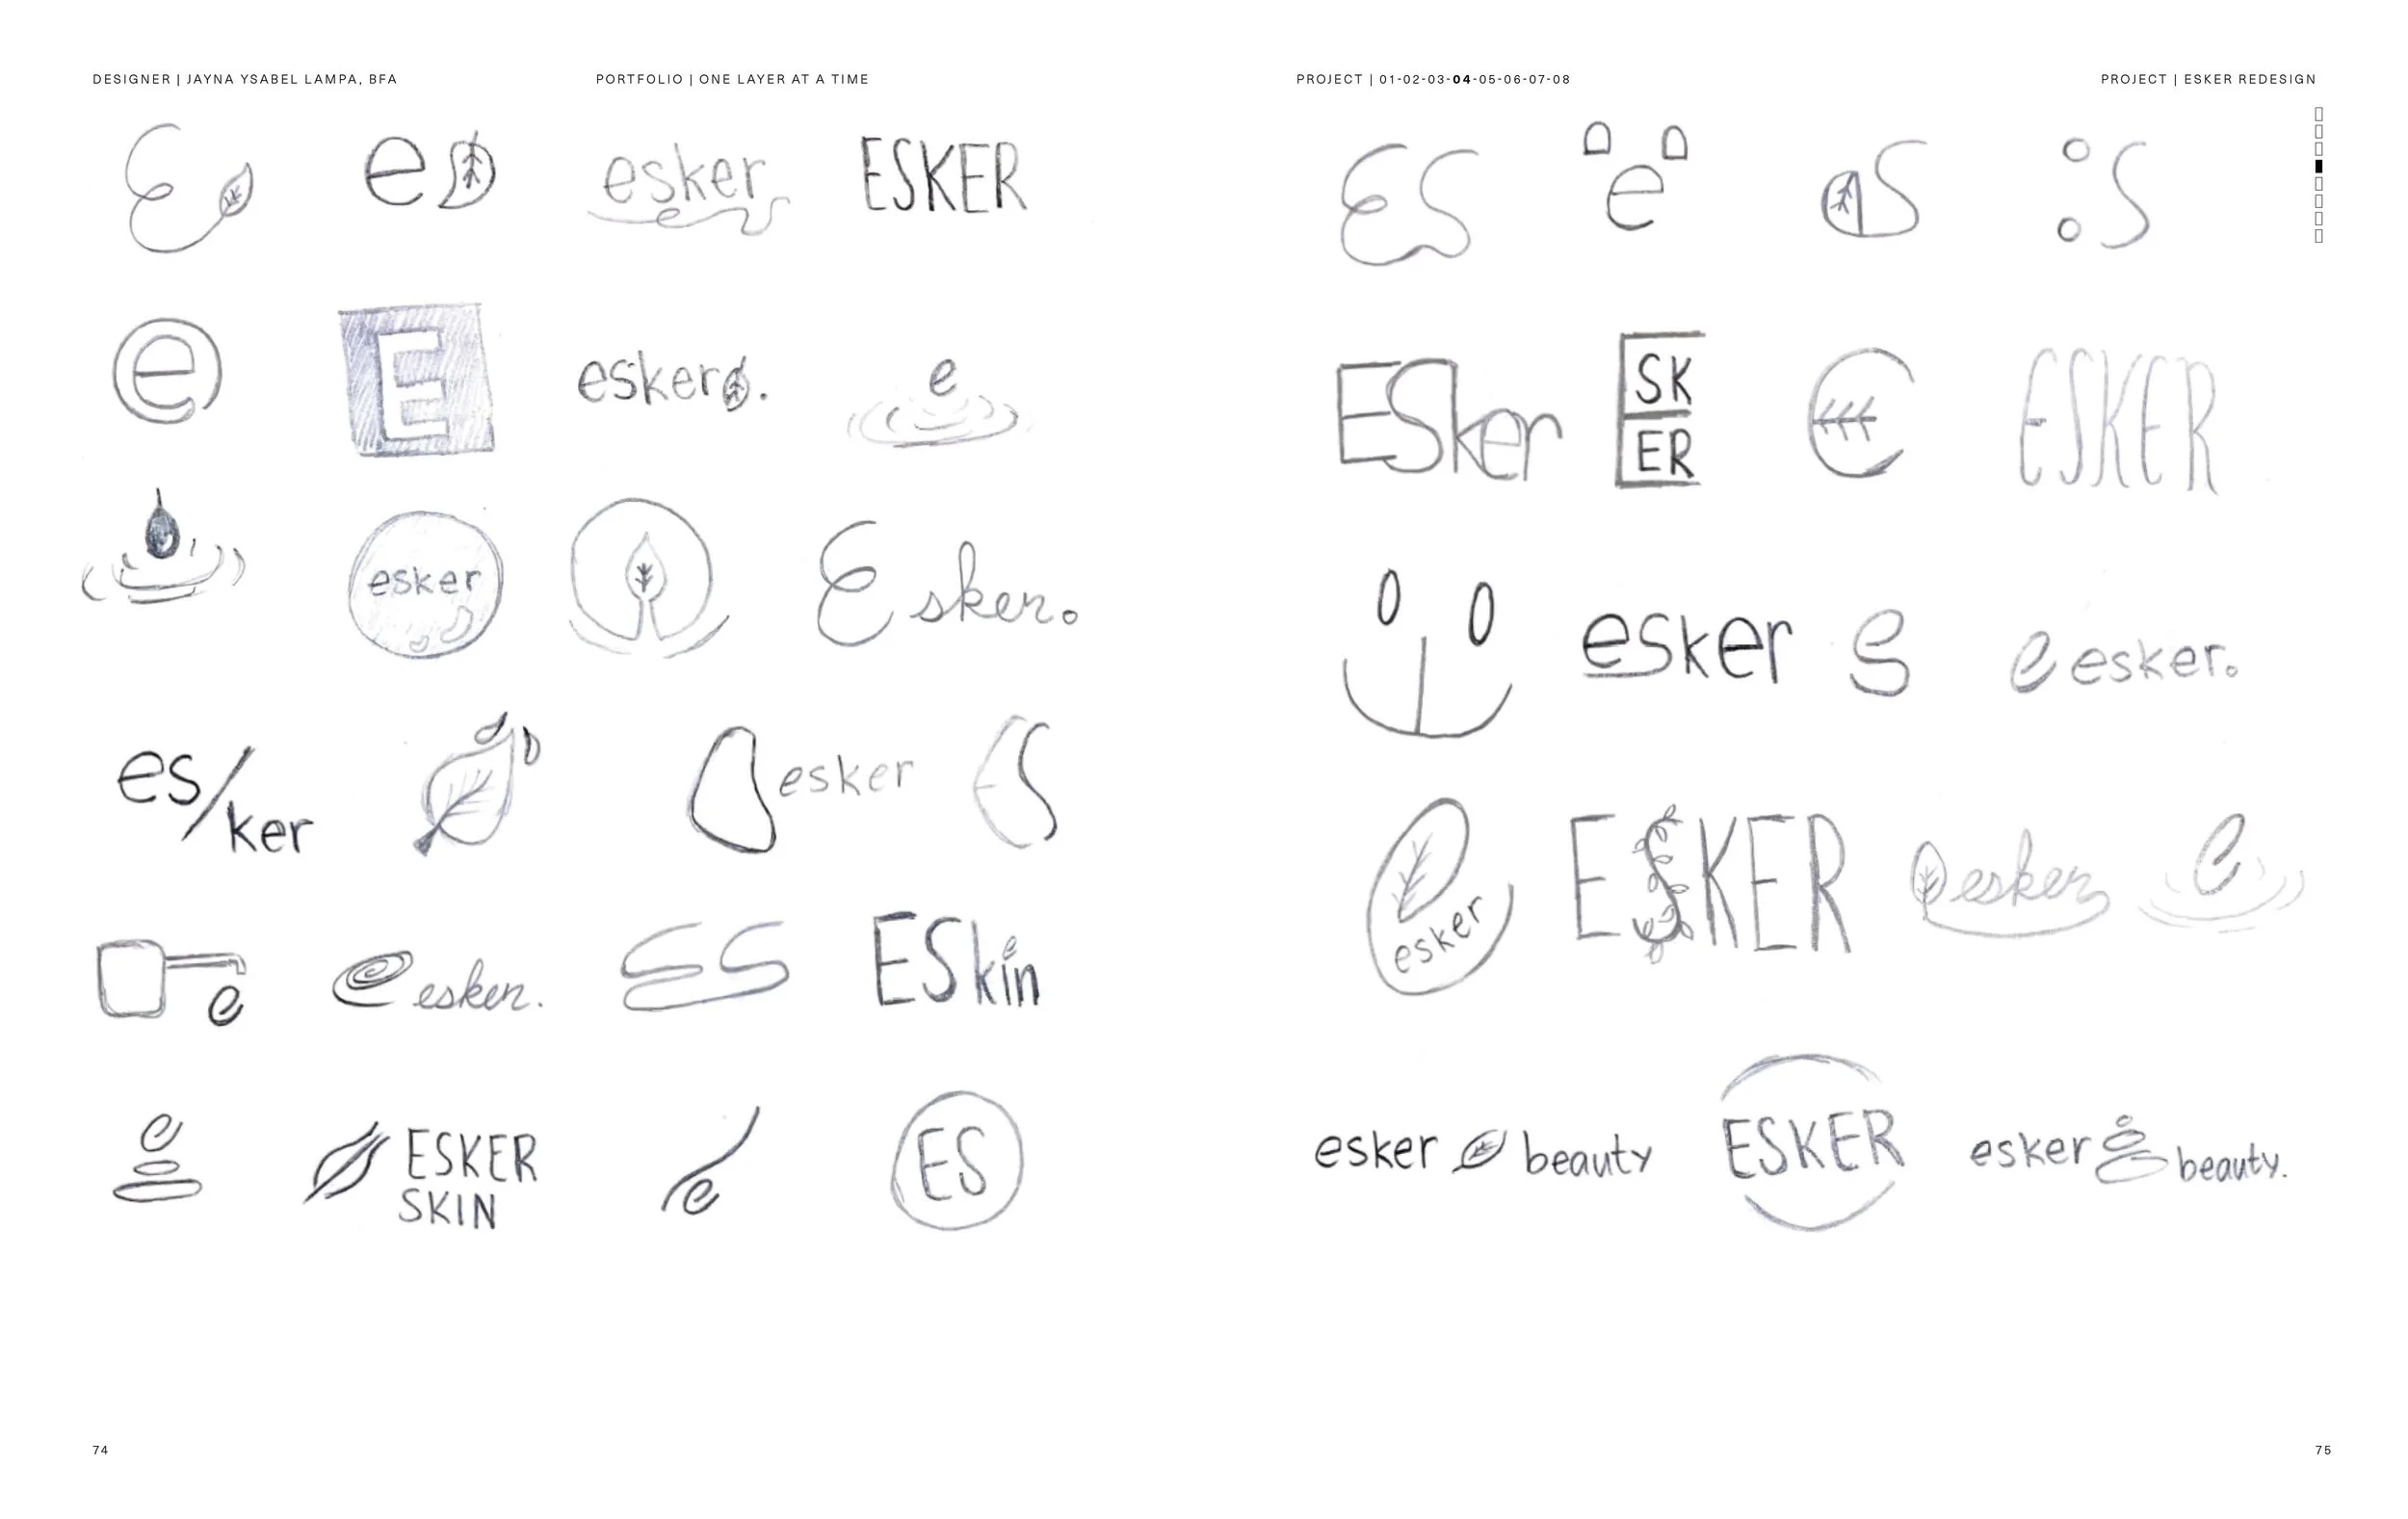 DESIGNER | JAYNA YSABEL LAMPA, BFA
PORTFOLIO | ONE LAYER AT A TIME
E
e
esker
ESKER
e
E
esker.
e
esker
Esker.
es/
ker
esker
ES
e
e esker.
ES
ESkin
e
ESKER
SKIN
e
ES
74
PROJECT | 01-02-03-04-05-06-07-08
PROJECT | ESKER REDESIGN
ES
e
S
S
ESker
SK
ER
e
ESKER
esker
S
e esker.
esker
ESKER
esker
e
esker beauty
ESKER
esker beauty.
75